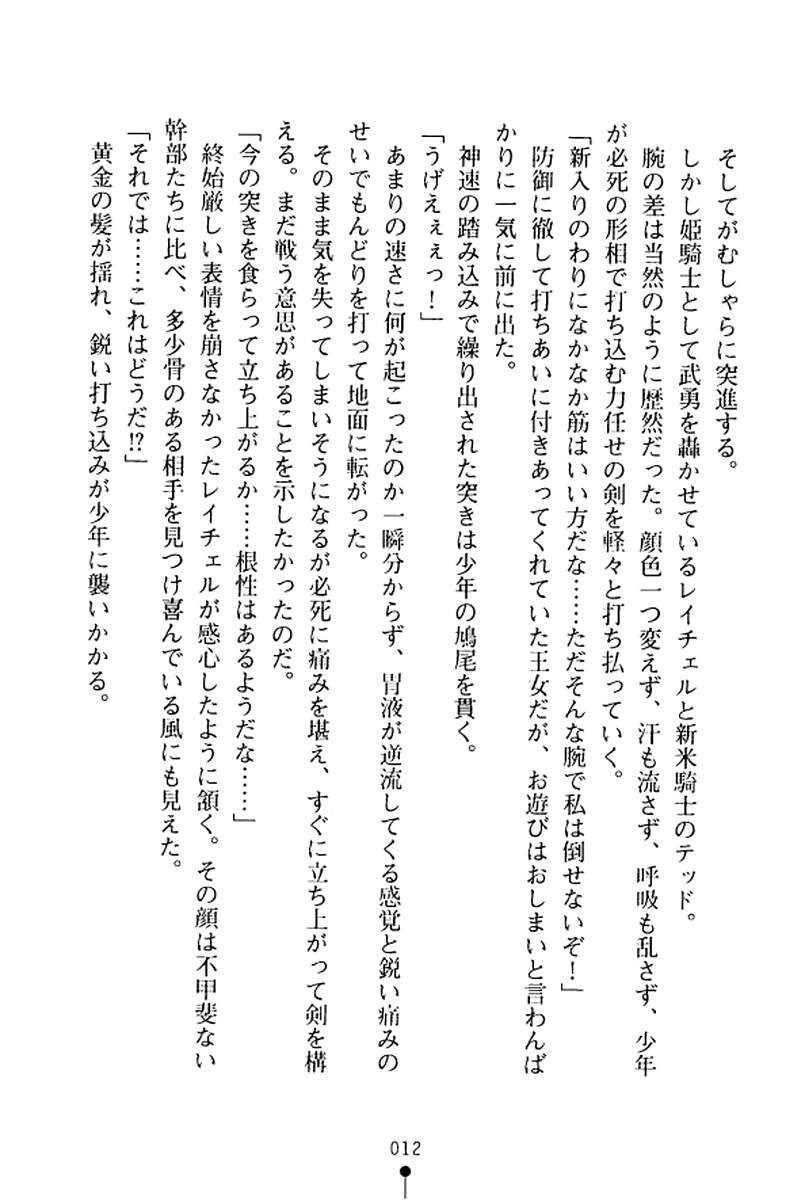 そしてがむしゃらに突進する。
しかし姫騎士として武勇を轟かせているレイチェルと新米騎士のテッド。
腕の差は当然のように歴然だった。顔色一つ変えず、汗も流さず、呼吸も乱さず、少年
が必死の形相で打ち込む力任せの剣を軽々と打ち払っていく。
「新入りのわりになかなか筋はいい方だな……ただそんな腕で私は倒せないぞ！」
防御に徹して打ちあいに付きあってくれていた王女だが、お遊びはおしまいと言わんば
かりに一気に前に出た。
神速の踏み込みで繰り出された突きは少年の鳩尾を貫く。
「うげえぇぇっ！」
あまりの速さに何が起こったのか一瞬分からず、胃液が逆流してくる感覚と鋭い痛みの
せいでもんどりを打って地面に転がった。
そのまま気を失ってしまいそうになるが必死に痛みを堪え、すぐに立ち上がって剣を構
える。まだ戦う意思があることを示したかったのだ。
「今の突きを食らって立ち上がるか……根性はあるようだな……」
終始厳しい表情を崩さなかったレイチェルが感心したように頷く。その顔は不甲斐ない
幹部たちに比べ、多少骨のある相手を見つけ喜んでいる風にも見えた。
「それでは……これはどうだ!?」
黄金の髪が揺れ、鋭い打ち込みが少年に襲いかかる。
012